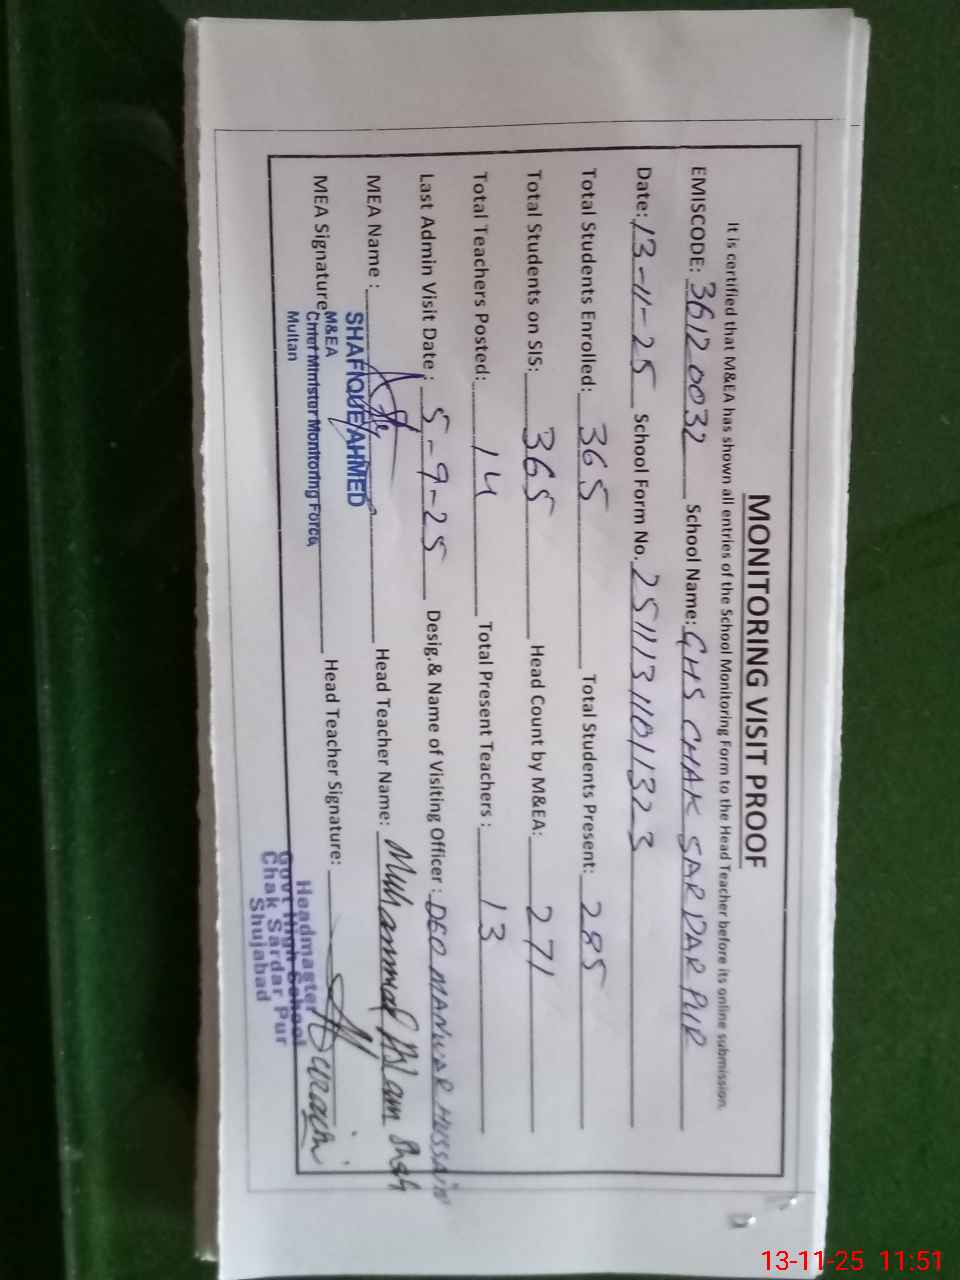 MONITORING VISIT PROOF
It is certified that M&EA has shown all entries of the School Monitoring Form to the Head Teacher before its online submission.
EMISCODE: 36120032 School Name: GHS CHAK SARDAR PUR
Date: 13-11-25 School Form No. 25111311101323
Total Students Enrolled: 365 Total Students Present: 285
Total Students on SIS: 365 Head Count by M&EA: 271
Total Teachers Posted: 14 Total Present Teachers : 13
Last Admin Visit Date : 5-9-25 Desig.& Name of Visiting Officer : DEO MANWAR HUSSAIN
MEA Name : SHAFIQUE AHMED Head Teacher Name: Muhammad Aslam Shah
MEA Signature Head Teacher Signature:
M&EA
Chief Minister Monitoring Force,
Multan
Headmaster
Govt High School
Chak Sardar Pur
Shujabad
13-11-25 11:51